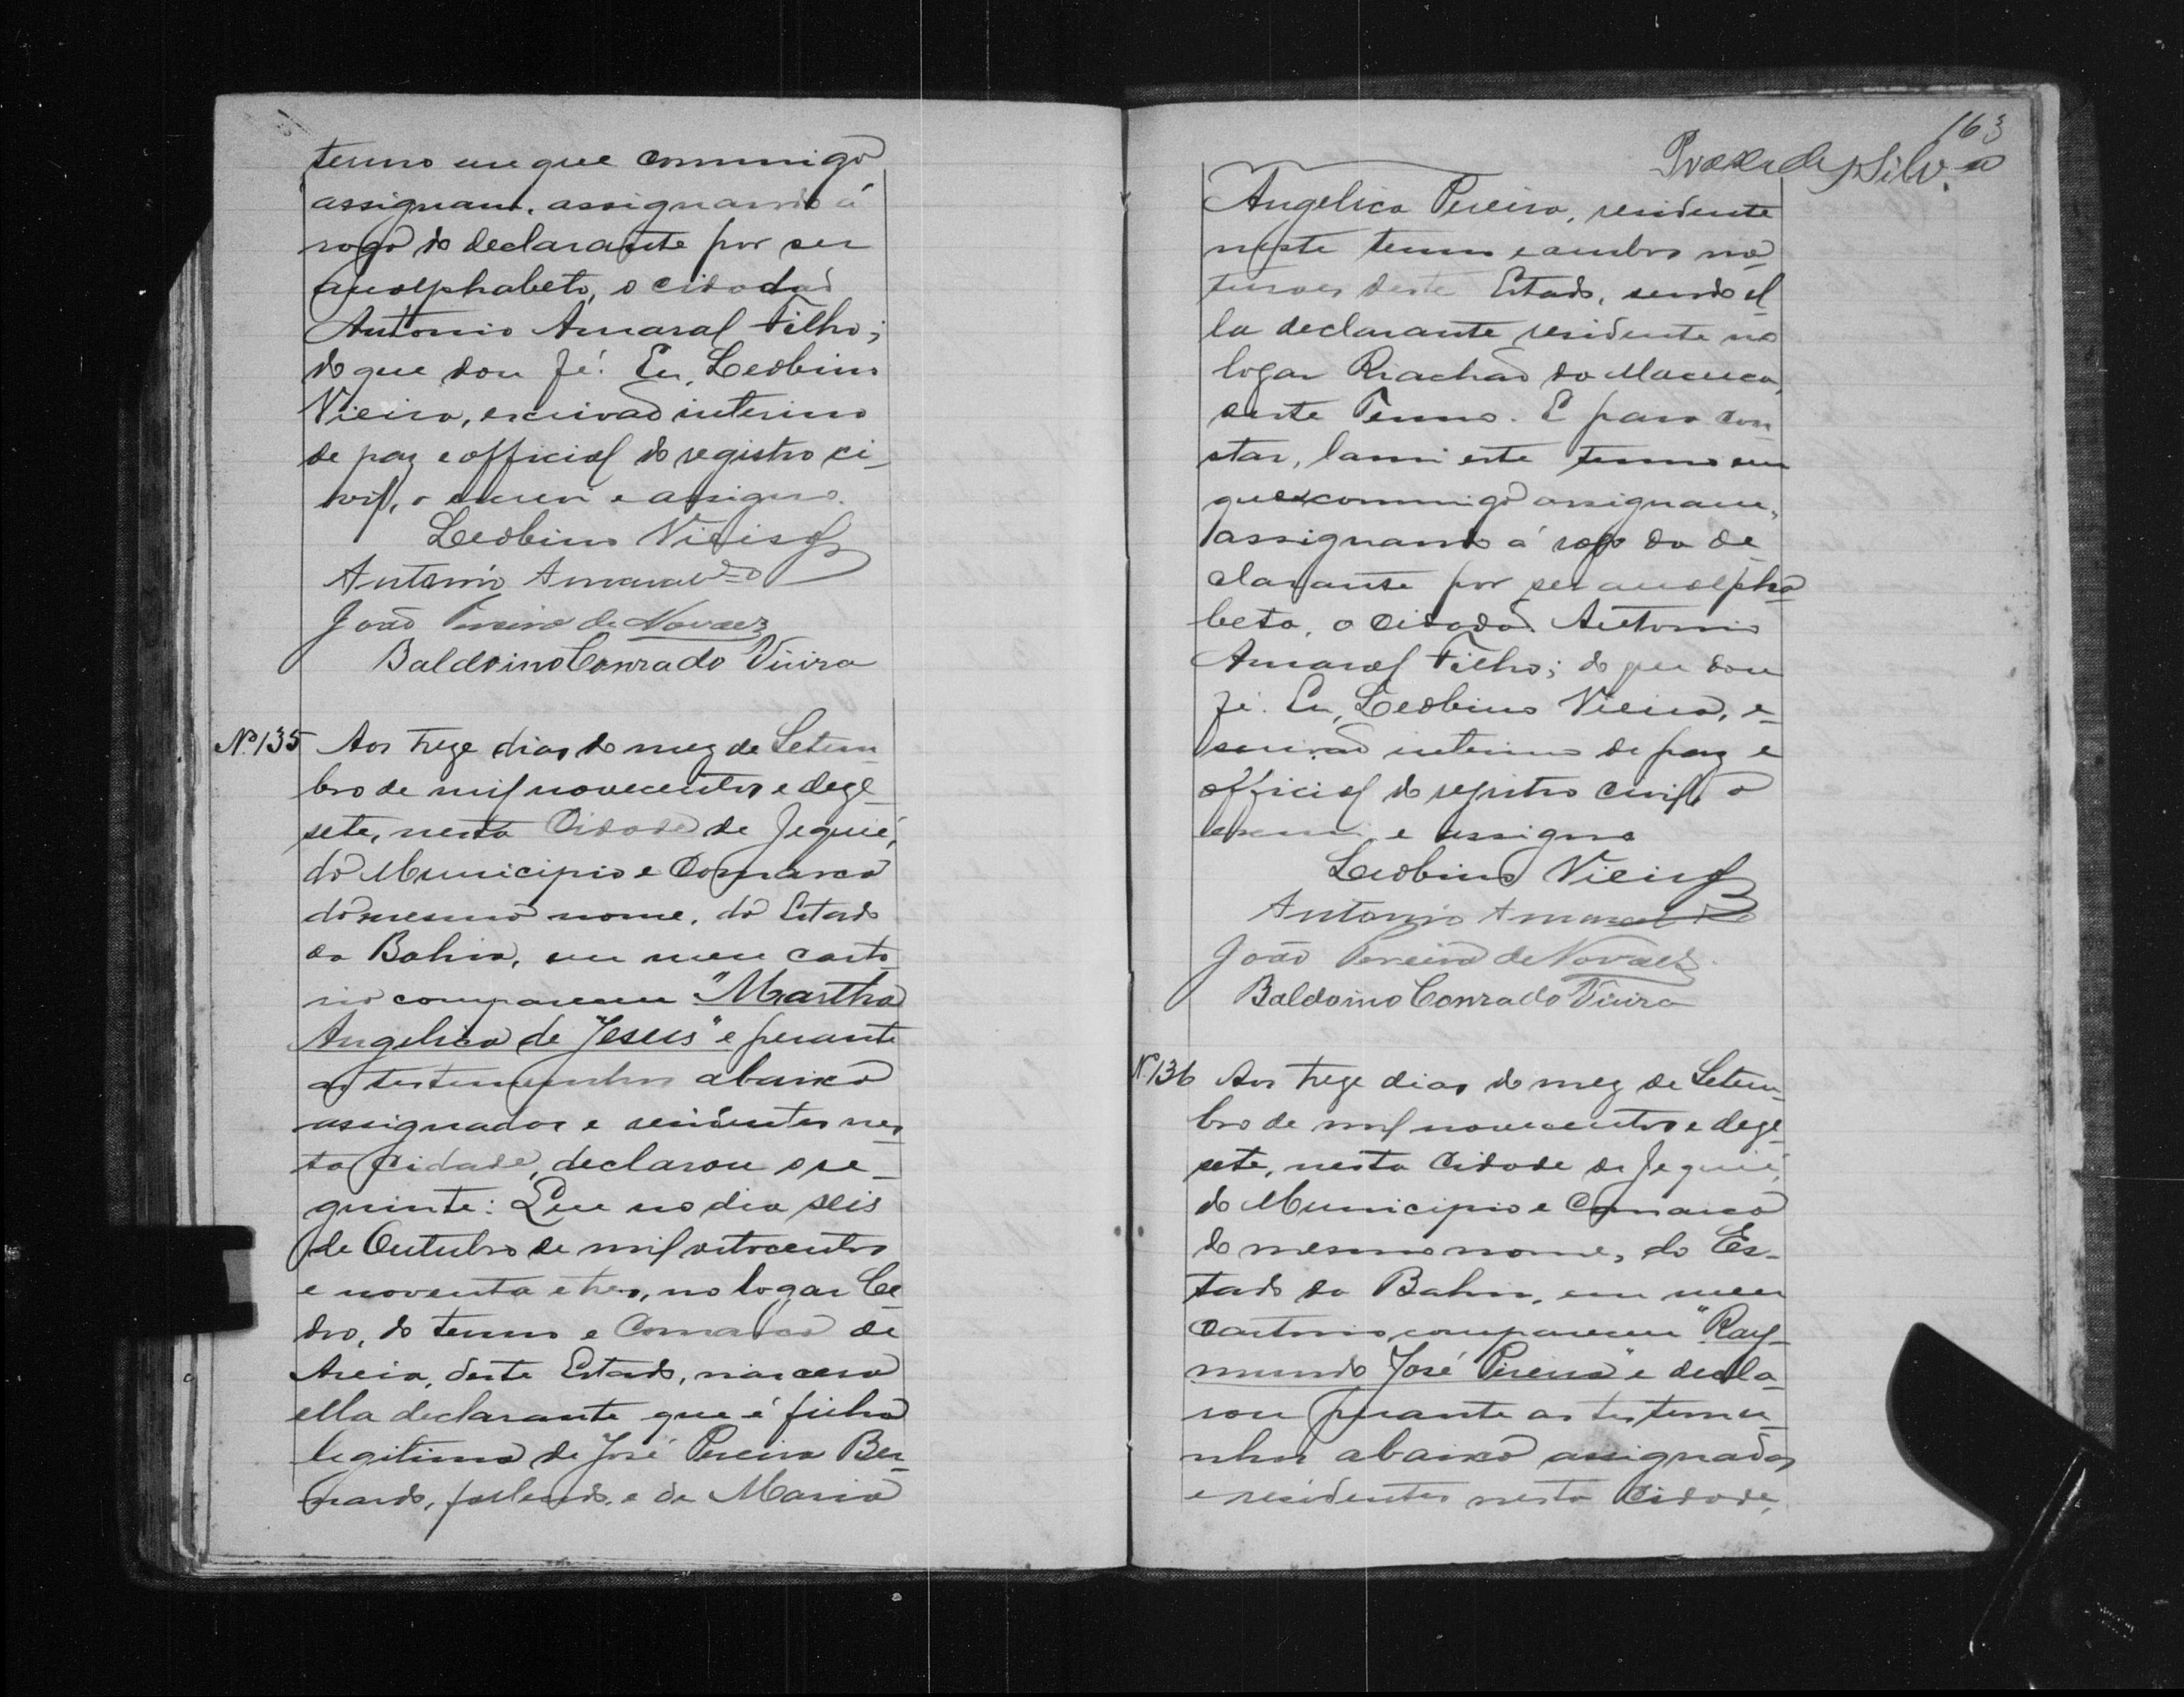 termo em que commigo
assignam, assignando á
rogo do declarante por ser
analphabeto, o cidadão
Antonio Amaral Filho;
do que dou fé. Eu, Leobino
Vieira, escrivão interino
de paz e official do registro ci-
vil, o escrevi e assigno.
Leobino Vieira
Antonio Amaral Fo
João Pereira de Novaes
Baldoino Conrado Vieira
Nº 135 Aos treze dias do mez de Setem-
bro de mil novecentos e deze-
sete, nesta Cidade de Jequié,
do Municipio e Comarca
do mesmo nome, do Estado
da Bahia, em meu carto-
rio compareceu "Martha
Angelica de Jesus" e perante
as testemunhas abaixo
assignadas e residentes nes-
ta Cidade, declarou o se-
guinte: Que no dia seis
de Outubro de mil oitocentos
e noventa e tres, no logar Ce-
dro, do termo e Comarca de
Areia, deste Estado, nascera
ella declarante que é filha
legitima de José Pereira Ber-
nardo, fallecido, e de Maria
163
Angelica Pereira, residente
neste termo e ambos na-
turaes deste Estado, sendo el-
la declarante residente no
logar Riachão do Mucuca,
deste Termo. E para con-
star, lavrei este termo em
que commigo assignam,
assignando á rogo da de-
clarante por ser analpha-
beta, o cidadão Antonio
Amaral Filho; do que dou
fé. Eu, Leobino Vieira, e-
scrivão interino de paz e
official do registro civil, o
escrevi e assigno
Leobino Vieira
Antonio Amaral Fo
João Pereira de Novaes
Baldoino Conrado Vieira
Nº 136 Aos treze dias do mez de Setem-
bro de mil novecentos e deze-
sete, nesta Cidade de Jequié,
do Municipio e Comarca
do mesmo nome, do Es-
tado da Bahia, em meu
cartorio compareceu "Ray-
mundo José Pereira" e decla-
rou perante as testemu-
nhas abaixo assignadas
e residentes nesta Cidade,